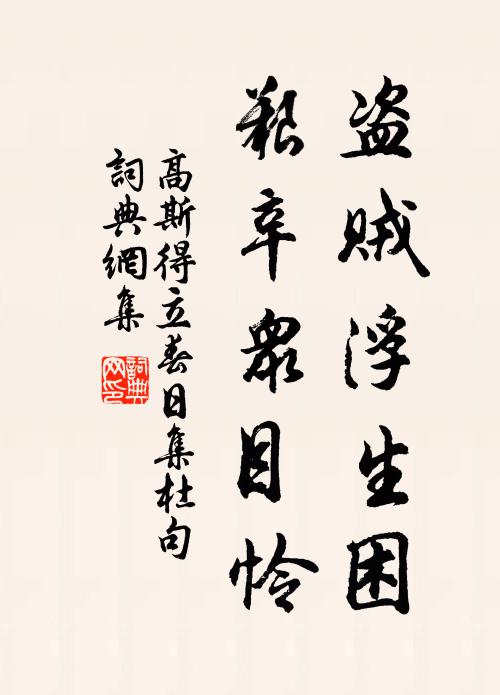 盗賊浮生困
艱辛眾目怜
高斯得立春日集杜句
詞典網集
詞典網印